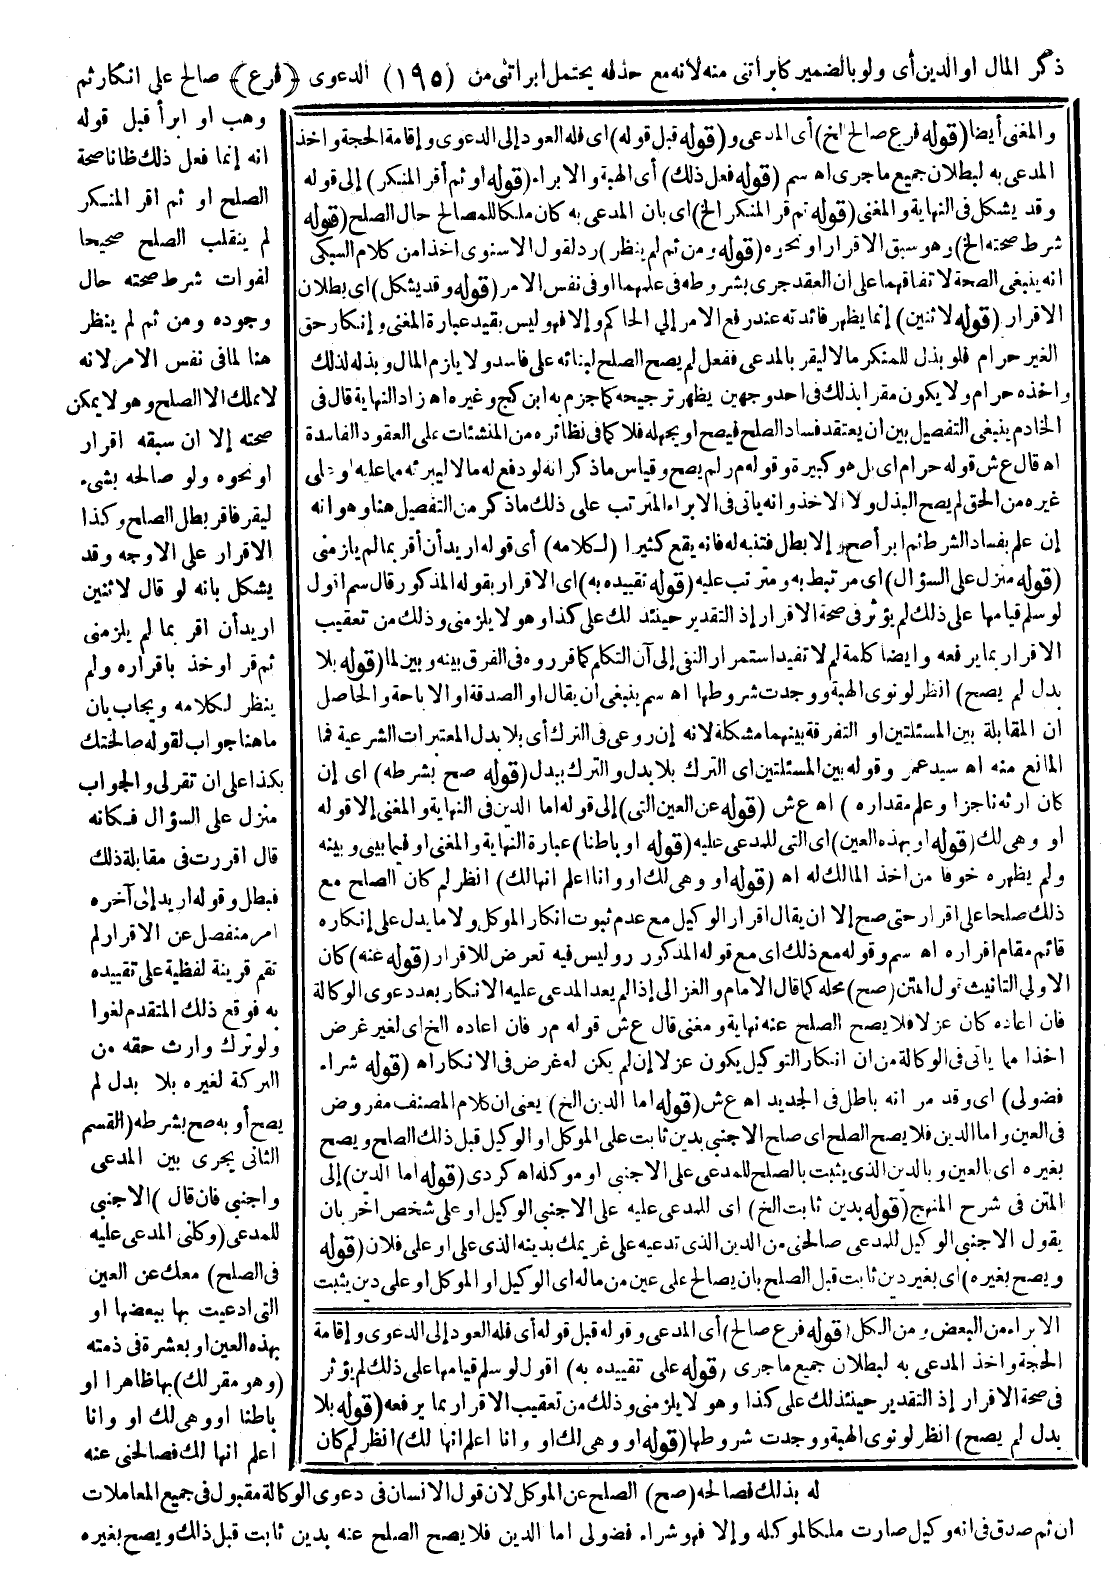 ذكر المال او الدين أى ولو بالضمير كابرأتنى منه لانه مع حذفه يحتمل ابرأتنى من (١٩٥) الدعوى (فرع) صالح على انكار ثم
وهب او ابرأ قبل قوله
انه إنما فعل ذلك ظانا صحة
الصلح او ثم اقر المنكر
لم ينقلب الصلح صحيحا
لفوات شرط صحته حال
وجوده ومن ثم لم ينظر
هنا لما فى نفس الامر لانه
لا تملك الا الصلح وهو لا يمكن
صحته إلا ان سبقه اقرار
او نحوه ولو صالحه بشىء
ليقر فاقر بطل الصلح وكذا
الاقرار على الاوجه وقد
يشكل بانه لو قال لاثنين
اريد أن اقر بما لم يلزمنى
ثم قر اوخذ باقراره ولم
ينظر لكلامه ويجاب بان
ما هنا جواب لقوله صالحتك
بكذا على ان تقر لى والجواب
منزل على السؤال فكانه
قال اقررت فى مقابلة ذلك
فبطل وقوله اريد إلى آخره
امر منفصل عن الاقرار لم
تقم قرينة لفظية على تقييده
به فوقع ذلك المتقدم لغوا
ولو ترك وارث حقه من
التركة لغيره بلا بدل لم
يصح أو به صح بشرطه (القسم
الثانى يجرى بين المدعى
واجنبى فان قال) الاجنبى
للمدعى (وكلنى المدعى عليه
فى الصلح) معك عن العين
التى ادعيت بها ببعضها او
بهذه العين او بعشرة فى ذمته
(وهو مقر لك) بها ظاهرا او
باطنا او وهى لك او وانا
اعلم انها لك فصالحنى عنه
له بذلك فصالحه (صح) الصلح عن الموكل لان قول الانسان فى دعوى الوكالة مقبول فى جميع المعاملات
ان ثم صدق فى انه وكيل صارت ملكا لموكله وإلا فهو شراء فضولى اما الدين فلا يصح الصلح عنه بدين ثابت قبل ذلك ويصح بغيره
والمغنى أيضا (قوله فرع صالح الخ) أى المدعى و (قوله قبل قوله) اى فله العود إلى الدعوى و إقامة الحجة واخذ
المدعى به لبطلان جميع ما جرى اه سم (قوله فعل ذلك) أى الهبة والابراء (قوله او ثم أقر المنكر) إلى قوله
وقد يشكل فى النهاية والمغنى (قوله ثم قر المنكر الخ) اى بان المدعى به كان ملكا للمصالح حال الصلح (قوله
شرط صحته الخ) وهو سبق الاقرار او نحوه (قوله ومن ثم لم ينظر) رد لقول الاسنوى اخذا من كلام السبكى
انه ينبغى الصحة لاتفاقهما على ان العقد جرى بشروطه فى علمهما او فى نفس الامر (قوله وقد يشكل) اى بطلان
الاقرار (قوله لاثنين) إنما يظهر فائدته عند رفع الامر إلى الحاكم وإلا فهو ليس بقيد عبارة المغنى وإنكار حق
الغير حرام فلو بذل للمنكر مالا ليقر بالمدعى ففعل لم يصح الصلح لبنائه على فاسد ولا يلزم المال وبذله لذلك
واخذه حرام ولا يكون مقرا بذلك فى احد وجهين يظهر ترجيحه كما جزم به ابن كج وغيره اه زاد النهاية قال فى
الخادم ينبغى التفصيل بين ان يعتقد فساد الصلح فيصح او يجهله فلا كما فى نظائره من المنشئات على العقود الفاسدة
اه قال ع ش قوله حرام اى بل هو كبيرة وقوله م ر لم يصح وقياس ما ذكر انه لو دفع له مالا ليبرئه مما عليه او على
غيره من الحق لم يصح البذل ولا الاخذ وانه يأتى فى الابراء المترتب على ذلك ما ذكر من التفصيل هنا وهو انه
إن علم بفساد الشرط ثم ابرأ صح وإلا بطل فتنبه له فانه يقع كثيرا (لكلامه) أى قوله اريد أن أقر بما لم يلزمنى
(قوله منزل على السؤال) اى مرتبط به ومترتب عليه (قوله تقييده به) اى الاقرار بقوله المذكور قال سم اقول
لو سلم قيامها على ذلك لم يؤثر فى صحة الاقرار إذ التقدير حينئذ لك على كذا وهو لا يلزمنى وذلك من تعقيب
الاقرار بما يرفعه وايضا كلمة لم لا تفيد استمرار النفى إلى آن التكلم كما قرروه فى الفرق بينه وبين لما (قوله بلا
بدل لم يصح) انظر لو نوى الهبة ووجدت شروطها اه سم ينبغى ان يقال او الصدقة او الاباحة والحاصل
ان المقابلة بين المسئلتين او التفرقة بينهما مشكلة لانه إن روعى فى الترك أى بلا بدل المعتبرات الشرعية فما
المانع منه اه سيد عمر وقوله بين المسئلتين اى الترك بلا بدل والترك ببدل (قوله صح بشرطه) اى إن
كان ارثه ناجزا وعلم مقداره) اه ع ش (قوله عن العين التى) إلى قوله اما الدين فى النهاية والمغنى إلا قوله
او وهى لك (قوله او بهذه العين) اى التى للمدعى عليه (قوله او باطنا) عبارة النهاية والمغنى او فيما بينى وبينه
ولم يظهره خوفا من اخذ المالك له اه (قوله او وهى لك او وانا اعلم انها لك) انظر لم كان الصلح مع
ذلك صلحا على اقرار حتى صح إلا ان يقال اقرار الوكيل مع عدم ثبوت انكار الموكل ولا ما يدل على إنكاره
قائم مقام اقراره اه سم وقوله مع ذلك اى مع قوله المذكور وليس فيه تعرض للاقرار (قوله عنه) كان
الاولى التانيث قول المتن (صح) محله كما قال الامام والغزالى إذا لم يعد المدعى عليه الانكار بعد دعوى الوكالة
فان اعاده كان عزلا فلا يصح الصلح عنه نهاية ومغنى قال ع ش قوله م ر فان اعاده الخ اى لغير غرض
اخذا مما يأتى فى الوكالة من ان انكار التوكيل يكون عزلا إن لم يكن له غرض فى الانكار اه (قوله شراء
فضولى) اى وقد مر انه باطل فى الجديد اه ع ش (قوله اما الدين الخ) يعنى ان كلام المصنف مفروض
فى العين واما الدين فلا يصح الصلح اى صلح الاجنبى بدين ثابت على الموكل او الوكيل قبل ذلك الصلح ويصح
بغيره اى بالعين وبالدين الذى يثبت بالصلح للمدعى على الاجنبى او موكله اه كردى (قوله اما الدين) إلى
المتن فى شرح المنهج (قوله بدين ثابت الخ) اى للمدعى عليه على الاجنبى الوكيل او على شخص آخر بان
يقول الاجنبى الوكيل للمدعى صالحنى من الدين الذى تدعيه على غريمك بدينه الذى على او على فلان (قوله
ويصح بغيره) اى بغير دين ثابت قبل الصلح بان يصالح على عين من ماله اى الوكيل او الموكل او على دين يثبت
الابراء من البعض ومن الكل (قوله فرع صالح) أى المدعى وقوله قبل قوله أى فله العود إلى الدعوى وإقامة
الحجة واخذ المدعى به لبطلان جميع ما جرى (قوله على تقييده به) اقول لو سلم قيامها على ذلك لم يؤثر
فى صحة الاقرار إذ التقدير حينئذ لك على كذا وهو لا يلزمنى وذلك من تعقيب الاقرار بما يرفعه (قوله بلا
بدل لم يصح) انظر لو نوى الهبة ووجدت شروطها (قوله او وهى لك او وانا اعلم انها لك) انظر لم كان